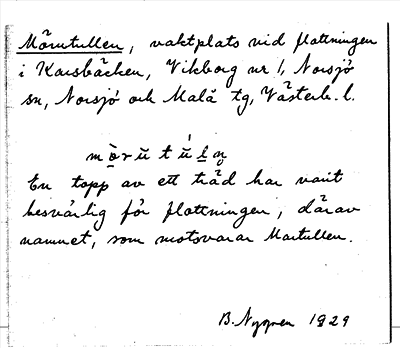 Mörutullen, vaktplats vid flottningen
i Karsbäcken, Vikborg nr 1, Norsjö
sn, Norsjö och Malå tg, Västerb. l.
En topp av ett träd har varit
besvärlig för flottningen, därav
namnet, som motsvarar Martullen.
B. Nygren 1929